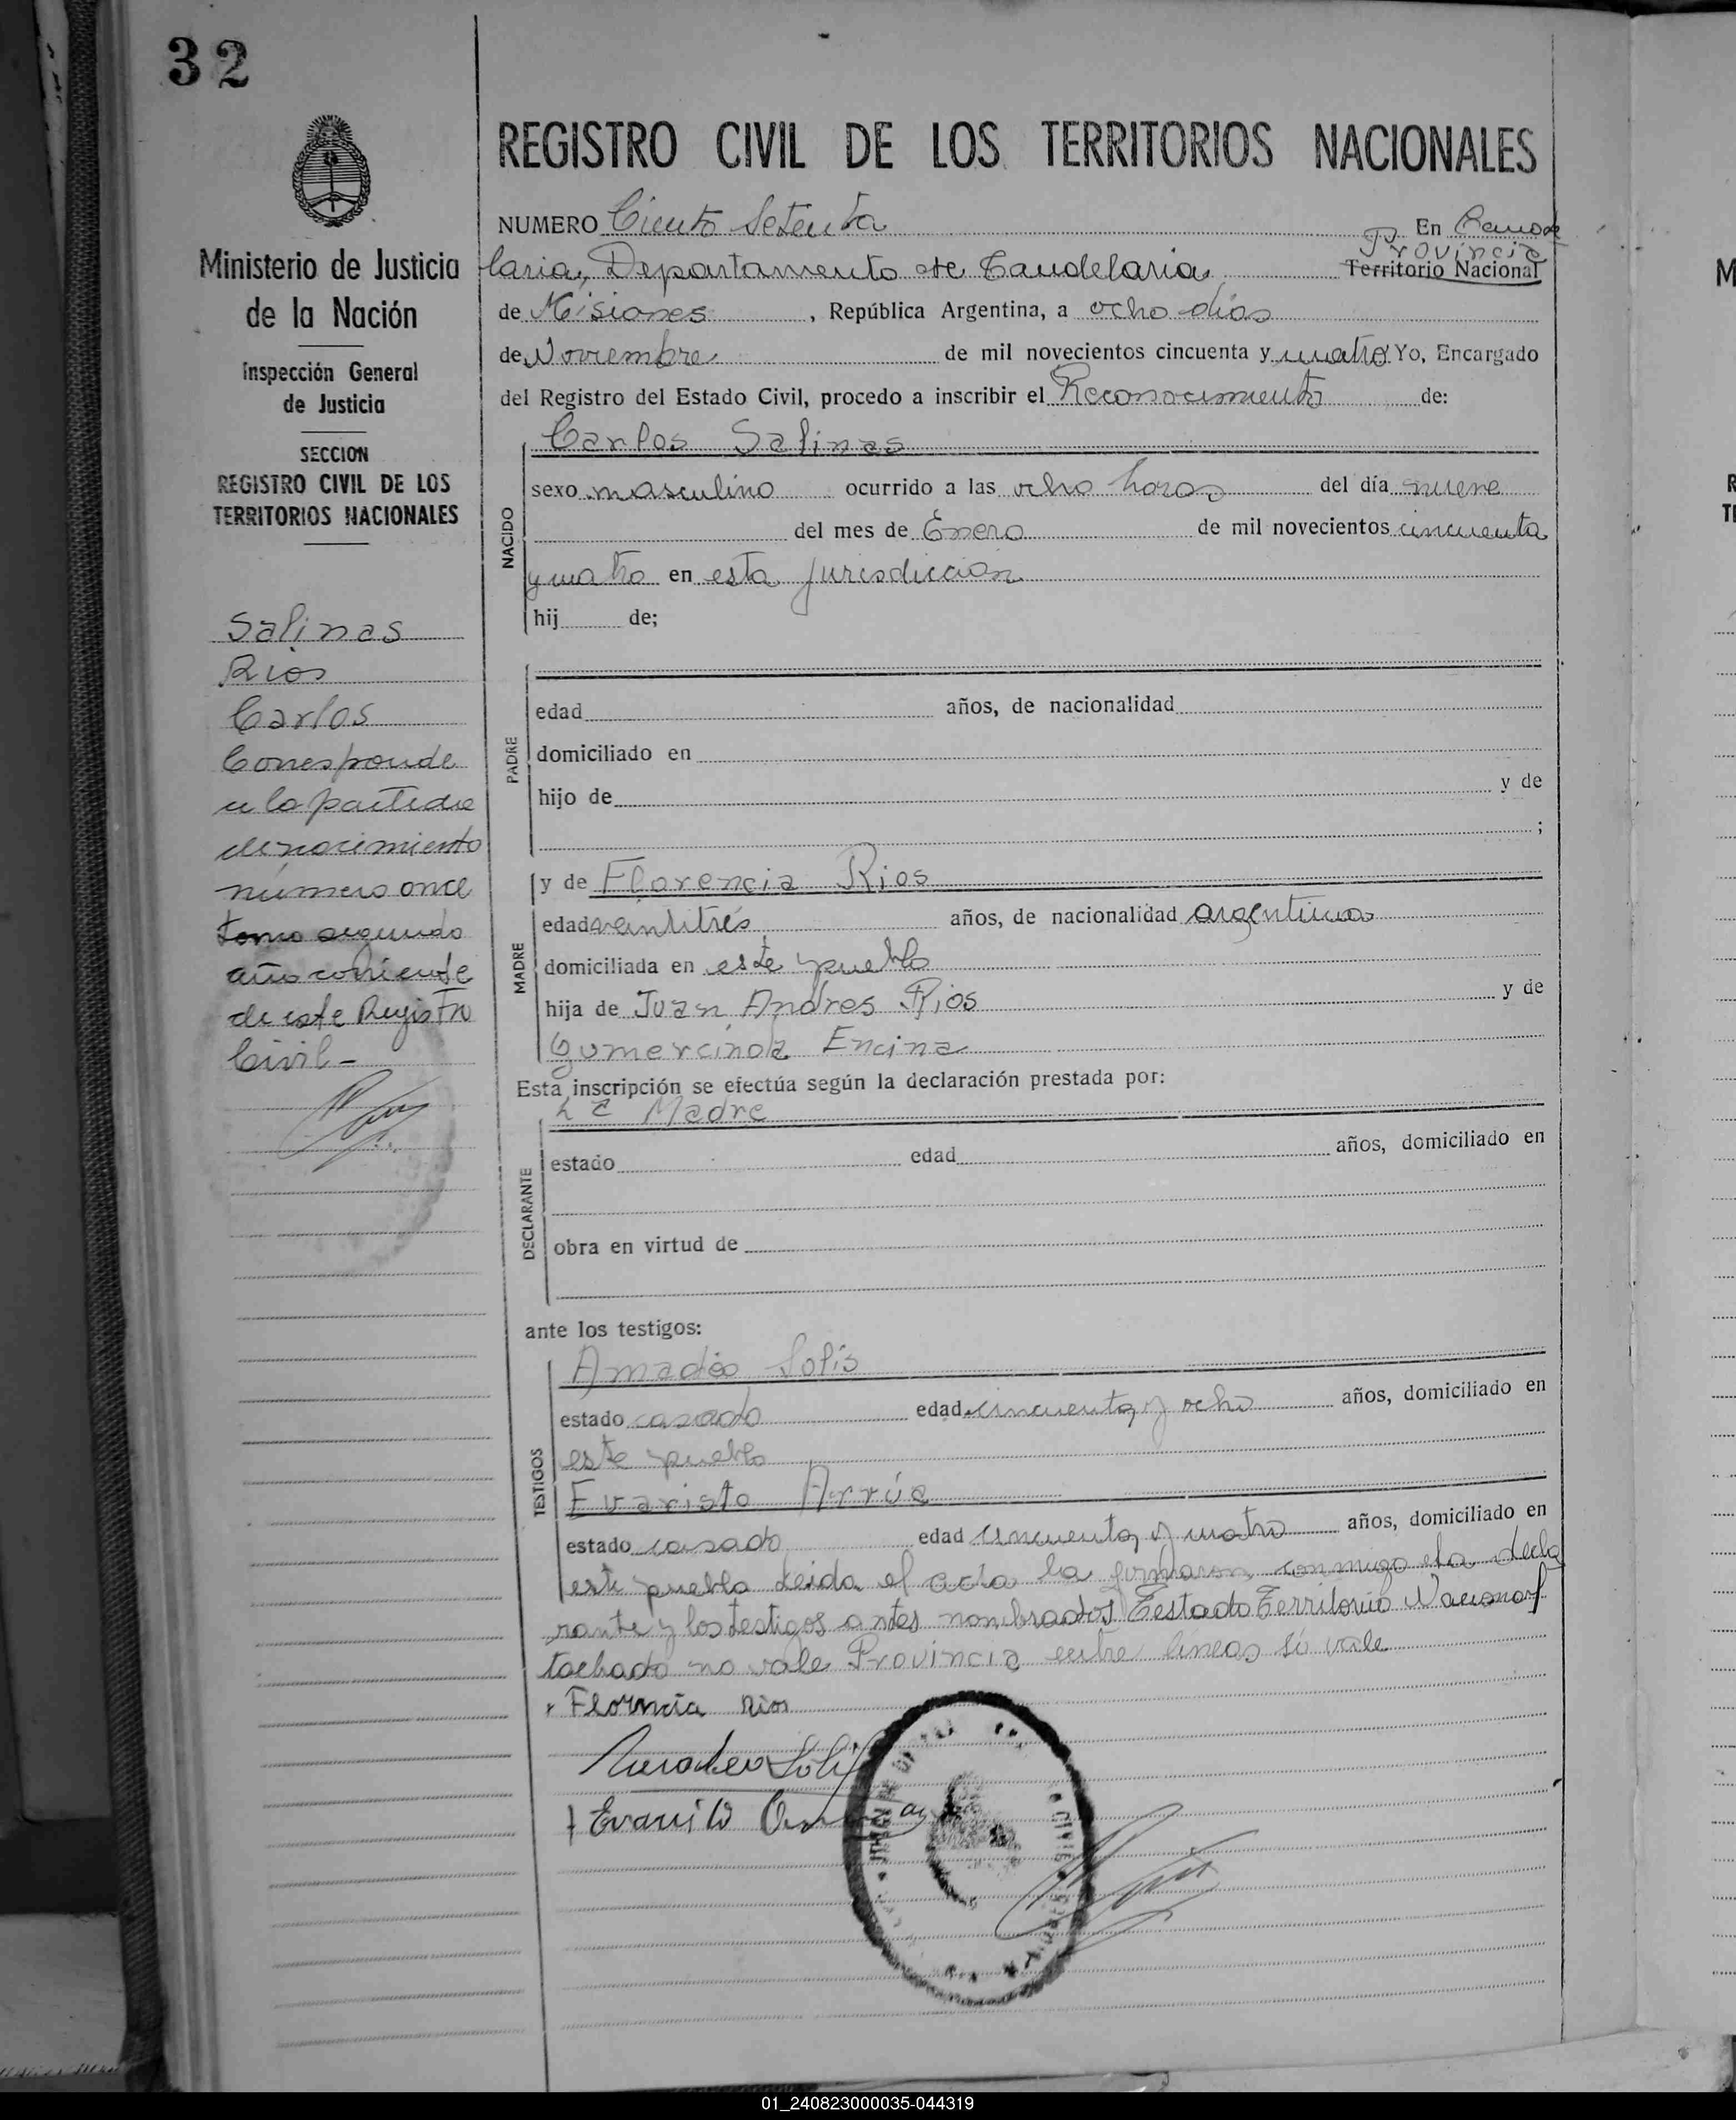 32
Ministerio de Justicia
de la Nación
Inspección General
de Justicia
SECCION
REGISTRO CIVIL DE LOS
TERRITORIOS NACIONALES
Salinas
Rios
Carlos
Corresponde
a la partida
de nacimiento
número once
tomo segundo
año corriente
de este Registro
Civil -
REGISTRO CIVIL DE LOS TERRITORIOS NACIONALES
NUMERO Ciento Setenta En Cande
Provincia
laria, Departamento de Candelaria, Territorio Nacional
de Misiones, República Argentina, a ocho días
de Noviembre de mil novecientos cincuenta y cuatro Yo, Encargado
del Registro del Estado Civil, procedo a inscribir el Reconocimiento de:
Carlos Salinas
NACIDO
sexo masculino ocurrido a las ocho horas del día nueve
del mes de Enero de mil novecientos cincuenta
y cuatro en esta jurisdicción
hij de;
PADRE
edad años, de nacionalidad
domiciliado en
hijo de y de
;
MADRE
y de Florencia Rios
edad veintitrés años, de nacionalidad argentina
domiciliada en este pueblo
hija de Juan Andres Rios y de
Gumercinda Encina
Esta inscripción se efectúa según la declaración prestada por:
La Madre
DECLARANTE
estado edad años, domiciliado en
obra en virtud de
ante los testigos:
TESTIGOS
Amadeo Solis
estado casado edad cincuenta y ocho años, domiciliado en
este pueblo
Evaristo Arrúa
estado casado edad cincuenta y cuatro años, domiciliado en
este pueblo Leida el acta la firmaron conmigo la decla
rante y los testigos antes nombrados Testado Territorio Nacional
tachado no vale Provincia entre líneas sí vale
Florencia Rios
Amadeo Solis
Evaristo
CIVIL
01_240823000035-044319